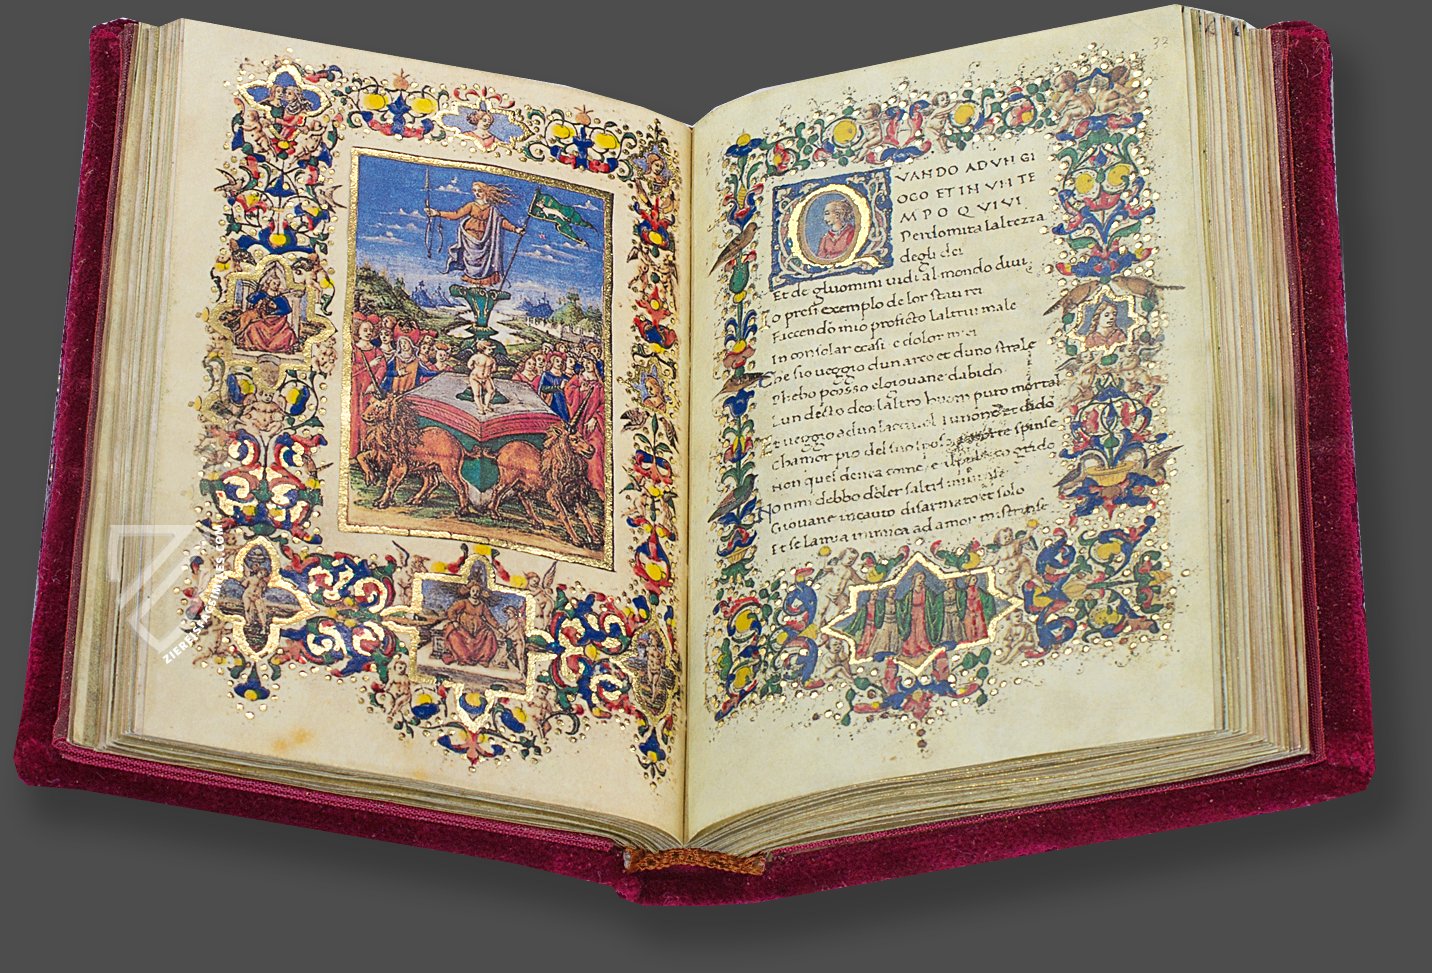 33
QVANDO AD VN GI
OGO ET IN VN TE
MPO QVIVI
Perdomita laltezza
degli dei
Et de gluomini uidi al mondo diui
Io presi exemplo de lor stati rei
Faccendo mio proficto laltrui male
In consolar e casi e dolor miei
Che sio ueggio dun arco et duno strale
Phebo percosso el giouane dabido
Lun decto deo laltro huom puro mortal
Et ueggio ad un lacciuol Iunone et dido
Chamor pio del suo sposo spinse
Non quel denea come el publico grido
Non mi debbo doler saltri mi uinse
Giouane incauto disarmato et solo
Et se la mia inimica ad amor nstrinse
ZIEREIS FACSIMILES.COM